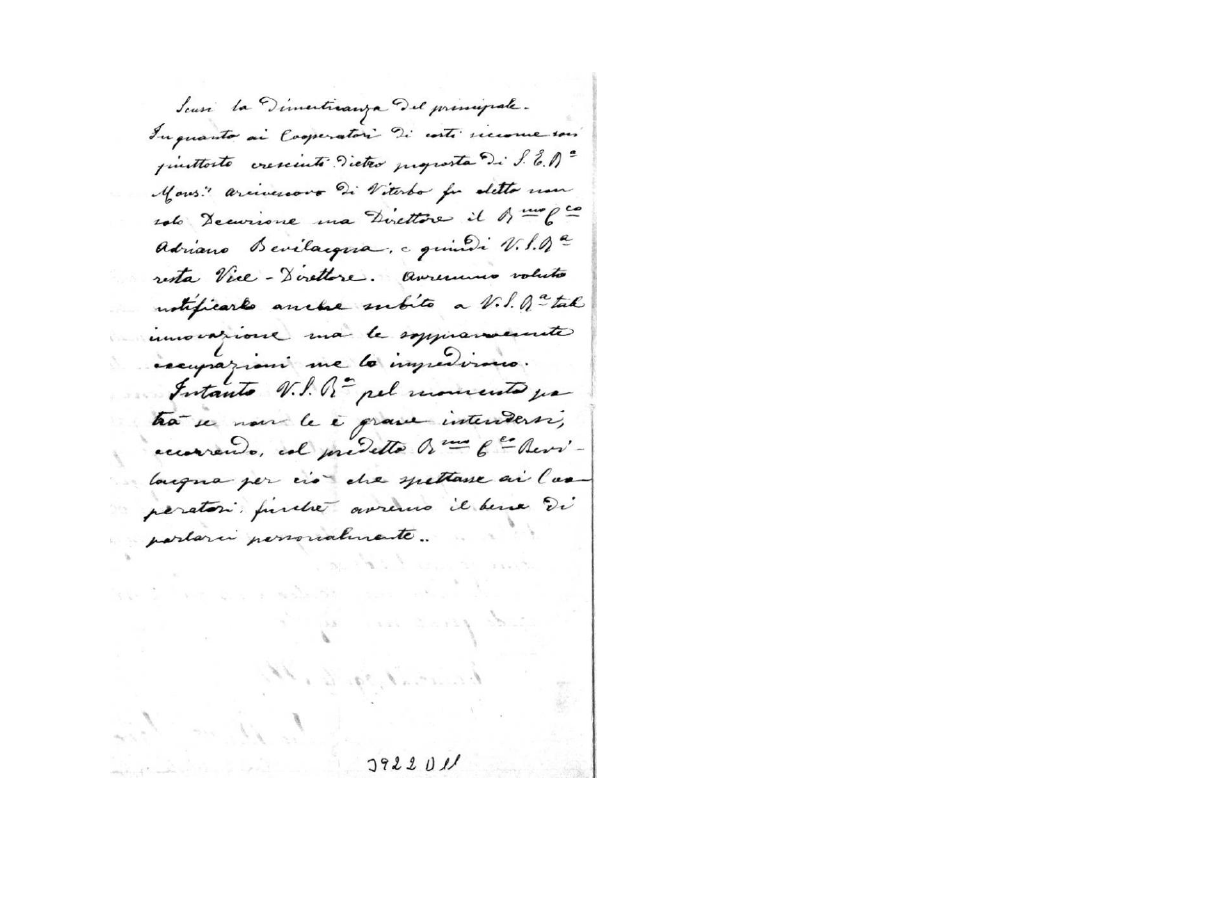 Scusi la dimenticanza del principale.
In quanto ai Cooperatori di costì siccome son
piuttosto cresciuti dietro proposta di S. E. Rª
Mons.r Arcivescovo di Viterbo fu eletto non
solo Decurione ma Direttore il Rmo Cco
Adriano Bevilacqua, e quindi V. S. Rª
resta Vice-Direttore. Avremmo voluto
notificarlo anche subito a V. S. Rª tal
innovazione ma le sopravvenute
occupazioni me lo impedirono.
Intanto V. S. Rª pel momento po
trà se non le è grave intendersi,
occorrendo, col predetto Rmo Cco Bevi-
lacqua per ciò che spettasse ai Coo-
peratori, finchè avremo il bene di
parlarci personalmente..
3922 D 11